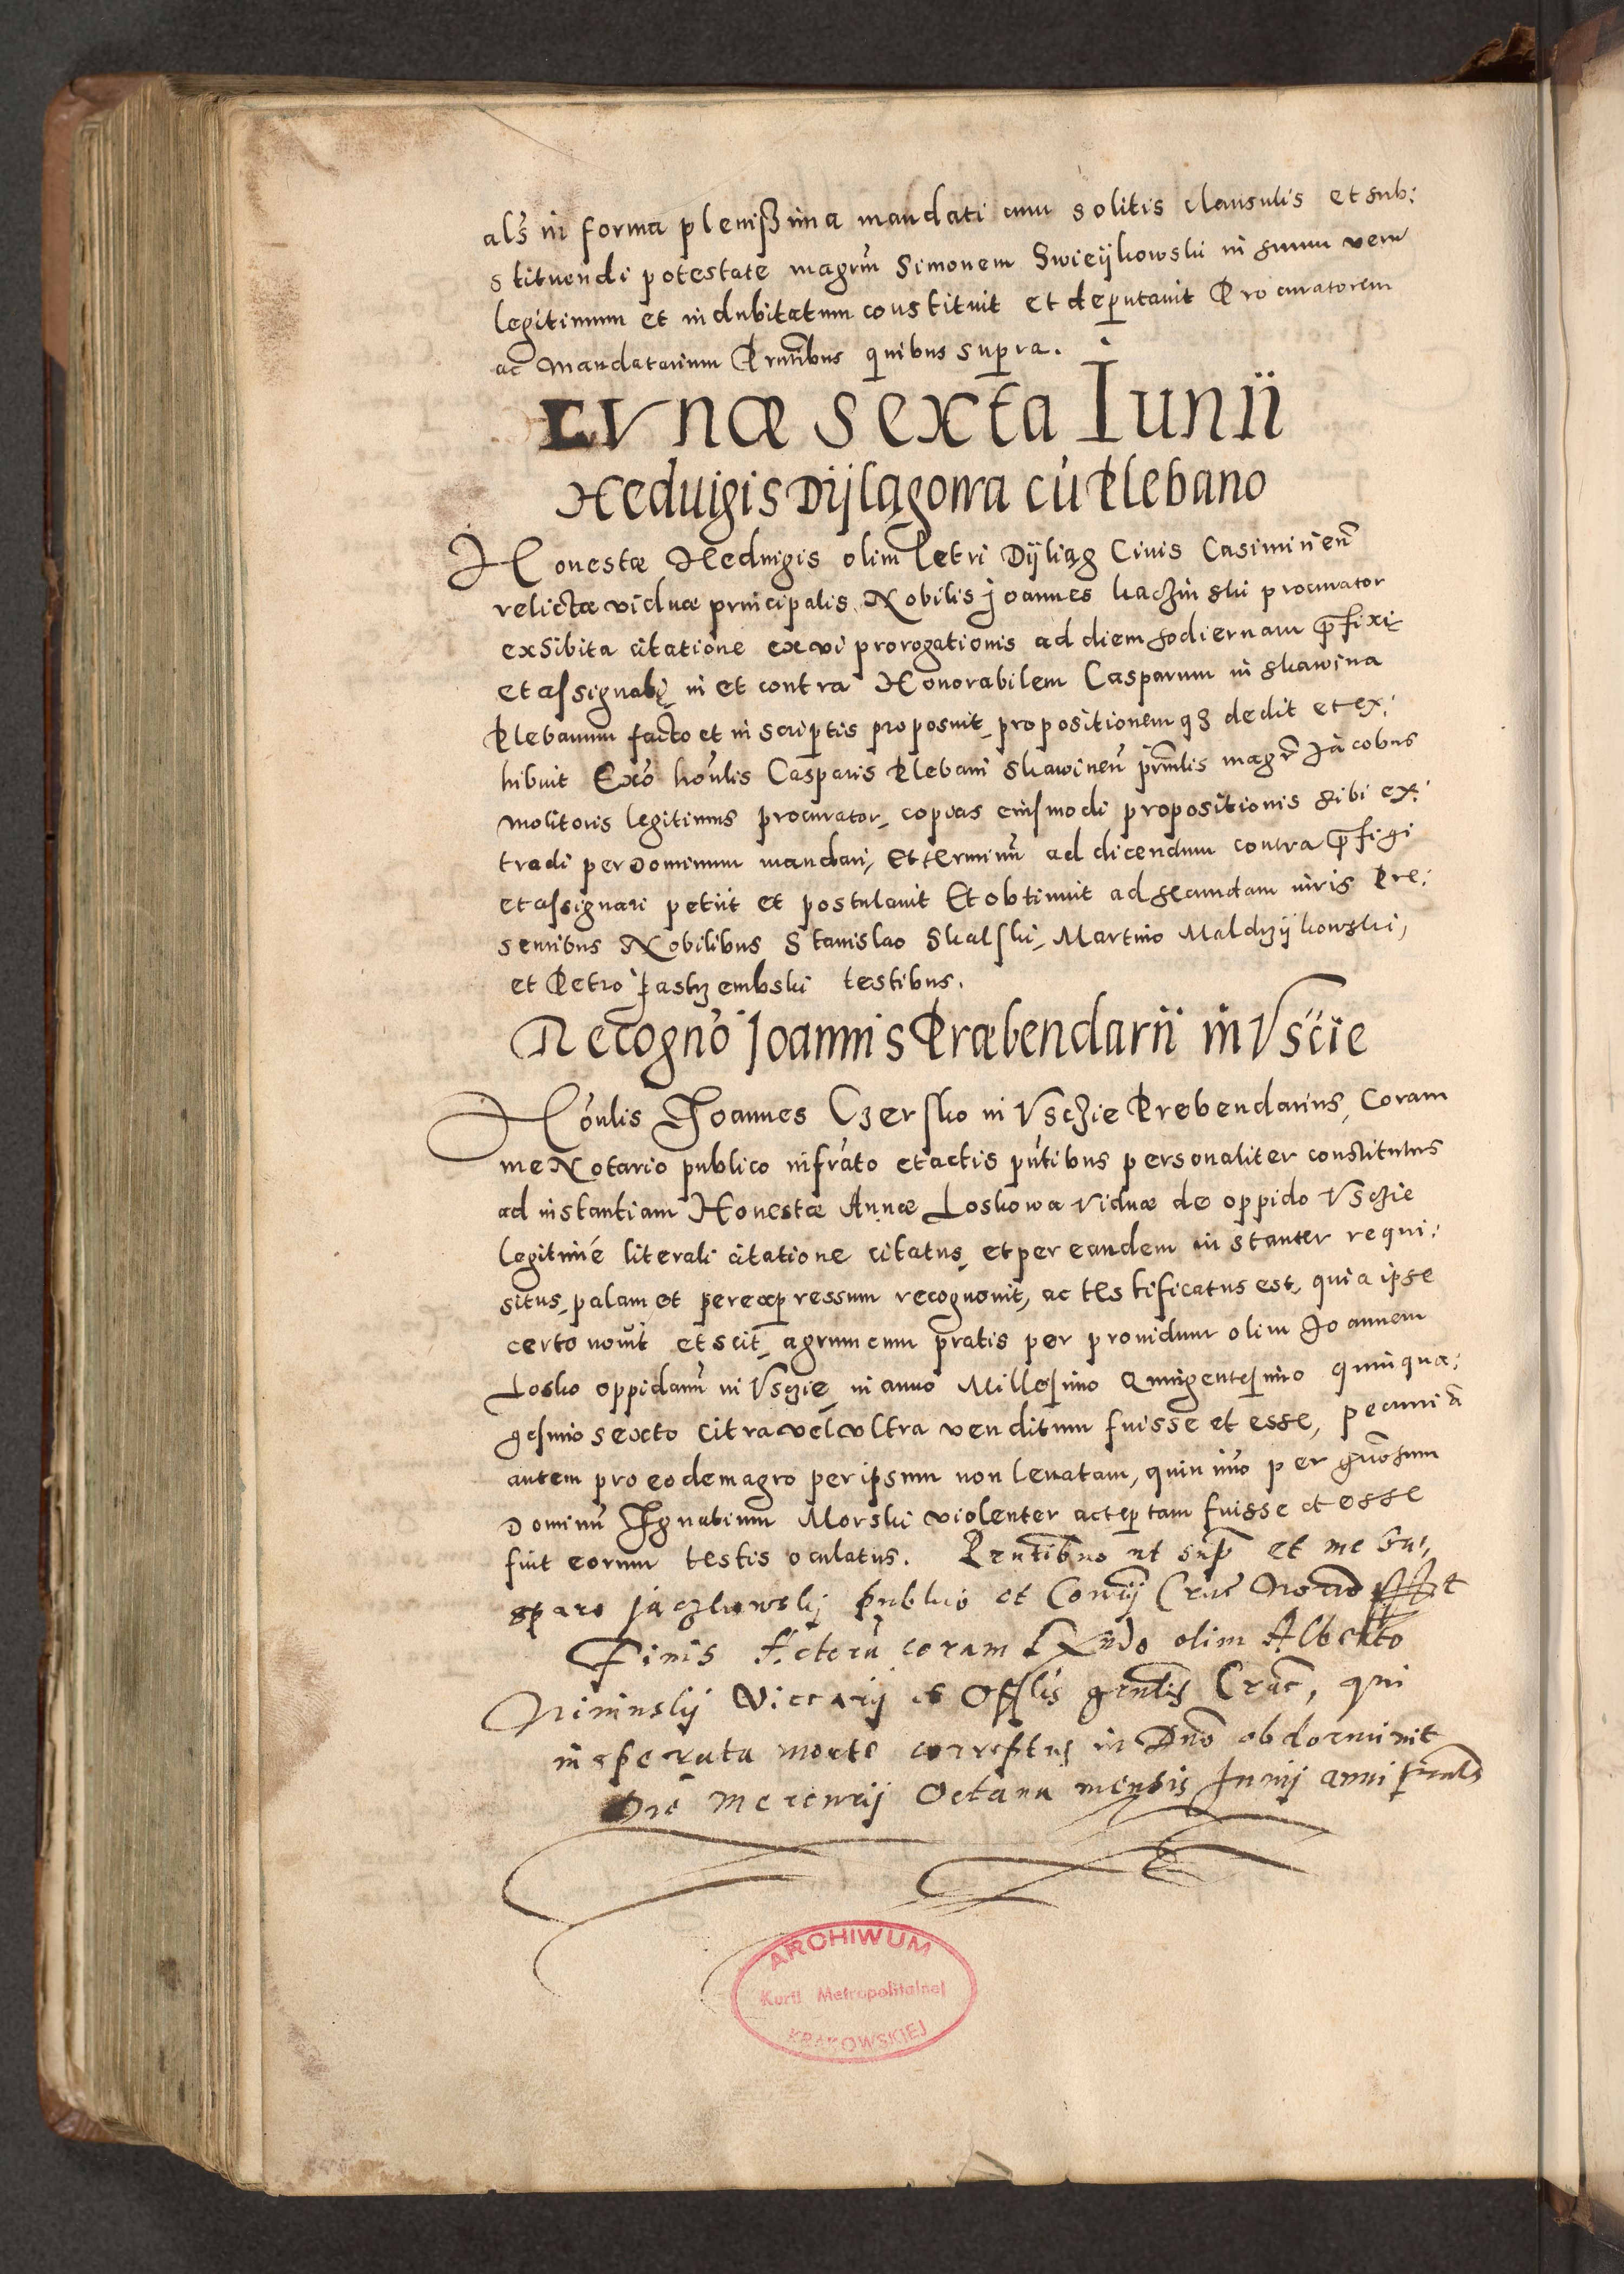 als̃ in forma pleniſzima mandati cum solitis clausulis et sub:
stituendi potestate magrum̃ Simonem Swieÿkowski in suum verum
legitimum et indubitatum constituit et deputauit Procuratorem
ac Mandatarium Pruntĩbus quibus supra.
LVNÆ SEXTA IUNII
Heduigis Dÿlągowa cũ Plebano
Honestæ Heduigis olim Petri Dÿliąg Ciuis Casimirien̄
relictæ viduæ principalis Nobilis Joannes kaczinski procurator
exhibita citatione ex vi prorogationis ad diem hodiernam p̄fixi
et aſsignati, in et contra Honorabilem Casparum in skawina
Plebanum facto et in scriptis proposuit, propositionemq3 dedit et ex:
hibuit Exõ honlis̃ Casparis Plebani Skawinen̄ prin̄lis magr̄ Jacobus
Molitoris legitimus procurator, copias eiuſmodi propositionis sibi ex:
tradi per Dominum mandari, Et terminũ ad dicendum contra p̄figi
et aſsignari petiit et postulauit Et obtinuit ad secundam iuris Pre:
sentibus Nobilibus Stanislao Skalſki, Martino Maldrzÿkowski,
et Petro Jastrzembski testibus.
Recognõ Joannis Præbendarii in Vscie
Honlis̃ Joannes Czerſko in Vsczie Prebendarius, Coram
me Notario publico infrãto et actis pn̄tibus personaliter constitutus
ad instantiam Honestæ Annæ Loskowa Viduæ de oppido Vsczie
Legitimé literali citatione citatus, et per eandem instanter requi:
situs, palam et per expressum recognouit, ac testificatus est, quia ipse
certo nouit et scit, agrum cum pratis per prouidum olim Joannem
Losko oppidanũ in Vsczie, in anno Milleſimo Quingenteſimo quinqua:
geſimo sexto citra vel vltra venditum fuisse et esse, pecuniã
autem pro eodem agro per ipsum non leuatam, quin imo per gn̄osum
Dominũ Ignatium Morski violenter acceptam fuisse et esse
fuit eorum testis oculatus. Pruntĩbus ut sup̄ et me Ga:,
sparo Jaczkowskij publico et Coñrij Crac̄ Noãrio
Finis Actorũ coram Rn̄do olim Alberto
Nininskij Vicarij et Off̃lis gn̄alis Crac̄, qui
insperata morte correptus in Dn̄o obdormiuit
Die Mercurij Octaua mensis Junij anni
ARCHIWUM
Kurii Metropolitalnej
KRAKOWSKIEJ